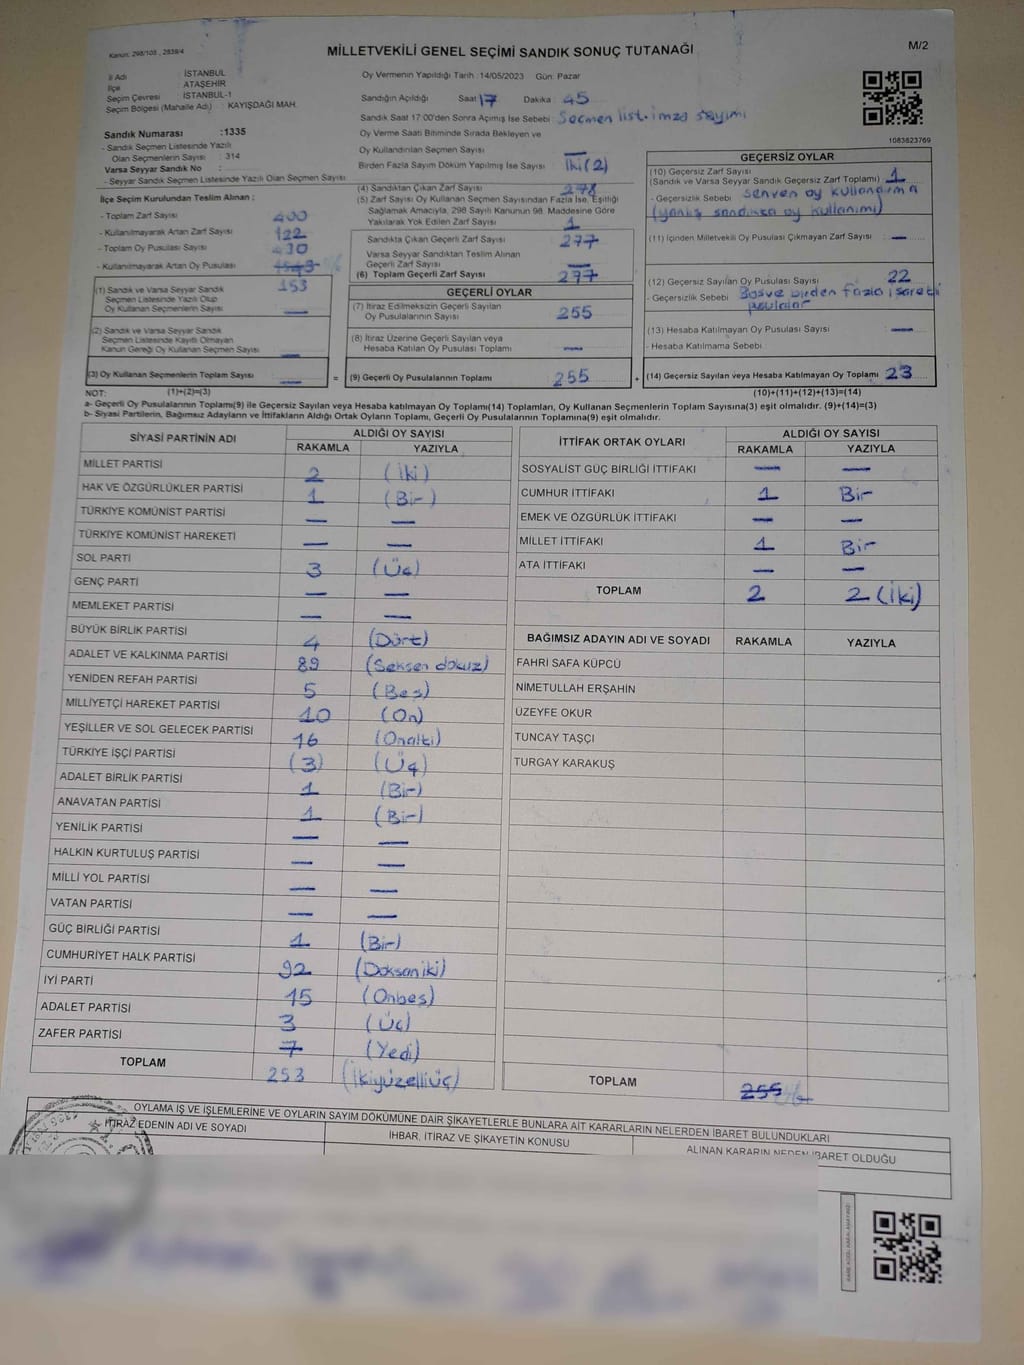 Kanun: 298/105 , 2839/4
MİLLETVEKİLİ GENEL SEÇİMİ SANDIK SONUÇ TUTANAĞI
M/2
İl Adı : İSTANBUL
İlçe : ATAŞEHİR
Seçim Çevresi : İSTANBUL-1
Seçim Bölgesi (Mahalle Adı) : KAYIŞDAĞI MAH.
Sandık Numarası :1335
- Sandık Seçmen Listesinde Yazılı
Olan Seçmenlerin Sayısı : 314
Varsa Seyyar Sandık No :
- Seyyar Sandık Seçmen Listesinde Yazılı Olan Seçmen Sayısı :
Oy Vermenin Yapıldığı Tarih :14/05/2023 Gün: Pazar
Sandığın Açıldığı Saat 17 Dakika : 45
Sandık Saat 17:00'den Sonra Açımış İse Sebebi : Seçmen list. imza sayımı
Oy Verme Saati Bitiminde Sırada Bekleyen ve
Oy Kullandırılan Seçmen Sayısı : —
Birden Fazla Sayım Döküm Yapılmış İse Sayısı : İki (2)
1083823769
İlçe Seçim Kurulundan Teslim Alınan :
- Toplam Zarf Sayısı : 400
- Kullanılmayarak Artan Zarf Sayısı : 122
- Toplam Oy Pusulası Sayısı : 430
- Kullanılmayarak Artan Oy Pusulası :
153
(1) Sandık ve Varsa Seyyar Sandık
Seçmen Listesinde Yazılı Olup
Oy Kullanan Seçmenlerin Sayısı : —
(2) Sandık ve Varsa Seyyar Sandık
Seçmen Listesinde Kayıtlı Olmayan
Kanun Gereği Oy Kullanan Seçmen Sayısı : —
(3) Oy Kullanan Seçmenlerin Toplam Sayısı : —
(4) Sandıktan Çıkan Zarf Sayısı : 278
(5) Zarf Sayısı Oy Kullanan Seçmen Sayısından Fazla İse, Eşitliği
Sağlamak Amacıyla, 298 Sayılı Kanunun 98. Maddesine Göre
Yakılarak Yok Edilen Zarf Sayısı : 1
Sandıkta Çıkan Geçerli Zarf Sayısı : 277
Varsa Seyyar Sandıktan Teslim Alınan
Geçerli Zarf Sayısı : —
(6) Toplam Geçerli Zarf Sayısı : 277
GEÇERLİ OYLAR
(7) İtiraz Edilmeksizin Geçerli Sayılan
Oy Pusulalarının Sayısı : 255
(8) İtiraz Üzerine Geçerli Sayılan veya
Hesaba Katılan Oy Pusulası Toplamı : —
= (9) Geçerli Oy Pusulalarının Toplamı : 255
GEÇERSİZ OYLAR
(10) Geçersiz Zarf Sayısı : 1
(Sandık ve Varsa Seyyar Sandık Geçersiz Zarf Toplamı)
- Geçersizlik Sebebi : senven oy kullandırma
(yanlış sandıkta oy kullanımı)
(11) İçinden Milletvekili Oy Pusulası Çıkmayan Zarf Sayısı : —
(12) Geçersiz Sayılan Oy Pusulası Sayısı : 22
- Geçersizlik Sebebi : Boş ve birden fazla işaretli
pusulalar
(13) Hesaba Katılmayan Oy Pusulası Sayısı : —
- Hesaba Katılmama Sebebi :
+ (14) Geçersiz Sayılan veya Hesaba Katılmayan Oy Toplamı : 23
NOT: (1)+(2)=(3) (10)+(11)+(12)+(13)=(14)
a- Geçerli Oy Pusulalarının Toplamı(9) ile Geçersiz Sayılan veya Hesaba katılmayan Oy Toplamı(14) Toplamları, Oy Kullanan Seçmenlerin Toplam Sayısına(3) eşit olmalıdır. (9)+(14)=(3)
b- Siyasi Partilerin, Bağımsız Adayların ve İttifakların Aldığı Ortak Oyların Toplamı, Geçerli Oy Pusulalarının Toplamına(9) eşit olmalıdır.
SİYASİ PARTİNİN ADI ALDIĞI OY SAYISI
RAKAMLA YAZIYLA
MİLLET PARTİSİ 2 (İki)
HAK VE ÖZGÜRLÜKLER PARTİSİ 1 (Bir)
TÜRKİYE KOMÜNİST PARTİSİ — —
TÜRKİYE KOMÜNİST HAREKETİ — —
SOL PARTİ 3 (Üç)
GENÇ PARTİ — —
MEMLEKET PARTİSİ — —
BÜYÜK BİRLİK PARTİSİ 4 (Dört)
ADALET VE KALKINMA PARTİSİ 89 (Seksen dokuz)
YENİDEN REFAH PARTİSİ 5 (Beş)
MİLLİYETÇİ HAREKET PARTİSİ 10 (On)
YEŞİLLER VE SOL GELECEK PARTİSİ 16 (Onaltı)
TÜRKİYE İŞÇİ PARTİSİ (3) (Üç)
ADALET BİRLİK PARTİSİ 1 (Bir)
ANAVATAN PARTİSİ 1 (Bir)
YENİLİK PARTİSİ — —
HALKIN KURTULUŞ PARTİSİ — —
MİLLİ YOL PARTİSİ — —
VATAN PARTİSİ — —
GÜÇ BİRLİĞİ PARTİSİ 1 (Bir)
CUMHURİYET HALK PARTİSİ 92 (Doksaniki)
İYİ PARTİ 15 (Onbeş)
ADALET PARTİSİ 3 (Üç)
ZAFER PARTİSİ 7 (Yedi)
TOPLAM 253 (İkiyüzelliüç)
İTTİFAK ORTAK OYLARI ALDIĞI OY SAYISI
RAKAMLA YAZIYLA
SOSYALİST GÜÇ BİRLİĞİ İTTİFAKI — —
CUMHUR İTTİFAKI 1 Bir
EMEK VE ÖZGÜRLÜK İTTİFAKI — —
MİLLET İTTİFAKI 1 Bir
ATA İTTİFAKI — —
TOPLAM 2 2 (İki)
BAĞIMSIZ ADAYIN ADI VE SOYADI RAKAMLA YAZIYLA
FAHRİ SAFA KÜPCÜ
NİMETULLAH ERŞAHİN
ÜZEYFE OKUR
TUNCAY TAŞÇI
TURGAY KARAKUŞ
TOPLAM 255
OYLAMA İŞ VE İŞLEMLERİNE VE OYLARIN SAYIM DÖKÜMÜNE DAİR ŞİKAYETLERLE BUNLARA AİT KARARLARIN NELERDEN İBARET BULUNDUKLARI
İTİRAZ EDENİN ADI VE SOYADI
İHBAR, İTİRAZ VE ŞİKAYETİN KONUSU
ALINAN KARARIN NEDEN İBARET OLDUĞU